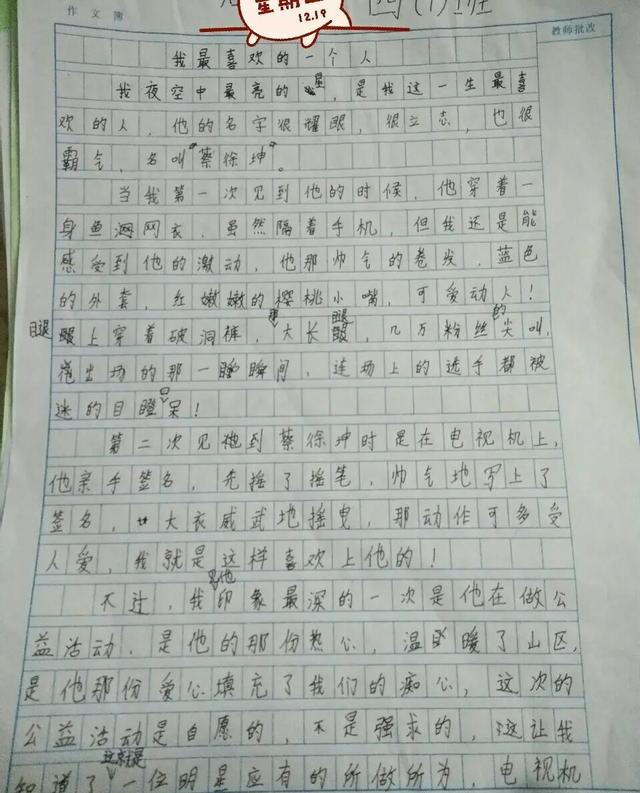 四(1)班
星期五
12.19
作文簿
教师批改
我最喜欢的一个人
我夜空中最亮的星，是我这一生最喜
欢的人，他的名字很耀眼，很立志，也很
霸气，名叫“蔡徐坤”。
当我第一次见到他的时候，他穿着一
身鱼网衣，虽然隔着手机，但我还是能
感受到他的激动，他那帅气的卷发，蓝色
的外套，红嫩嫩的樱桃小嘴，可爱动人！
腿上穿着破洞裤，那大长腿，几万粉丝的尖叫，
他出场的那一瞬间，连场上的选手都被
迷的目瞪口呆！
第二次见到蔡徐坤时是在电视机上，
他亲手签名，先摇了摇笔，帅气地写上了
签名，大衣威武地摇曳，那动作可多受
人爱，我就是这样喜欢上他的！
不过，我见他印象最深的一次是他在做公
益活动，是他的那份热心，温暖了山区，
是他那份爱心填充了我们的痴心，这次的
公益活动是自愿的，不是强求的，这让我
知道了这就是一位明星应有的所做所为，电视机